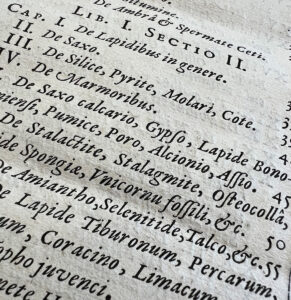 De Ambra & Spermate Ceti.
LIB. I. SECTIO II.
CAP. I. De Lapidibus in genere.
II. De Saxo.
III. De Silice, Pyrite, Molari, Cote.
IV. De Marmoribus.
De Saxo calcario, Gypso, Lapide Bono-
niensi, Pumice, Poro, Alcionio, Assio. 45
De Stalactite, Stalagmite, Osteocollâ,
Spongiæ, Unicornu fossili, &c. 50
De Amiantho, Selenitide, Talco, &c. 55
De Lapide Tiburonum, Percarum,
Coracino, Limacum
juvenci.